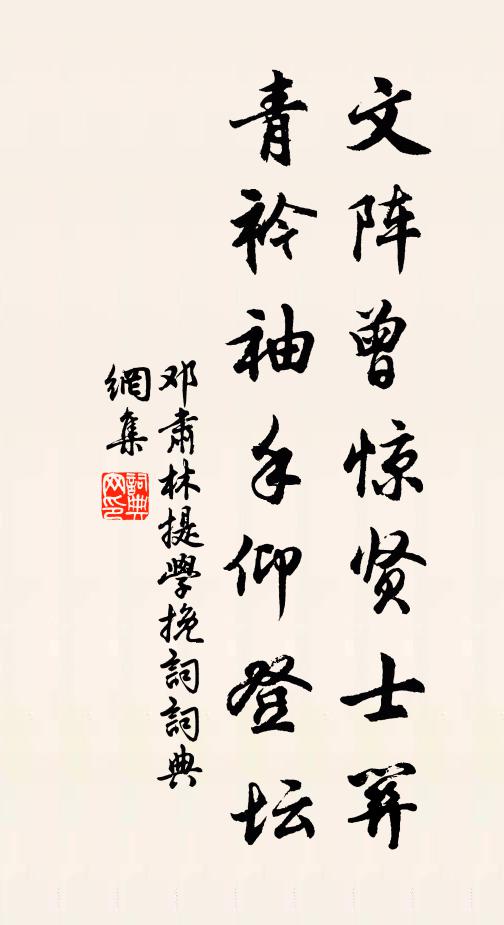 文阵曾惊贤士羿
青衿袖手仰登坛
邓肃林提學挽詞詞典
網集
詞典
网印